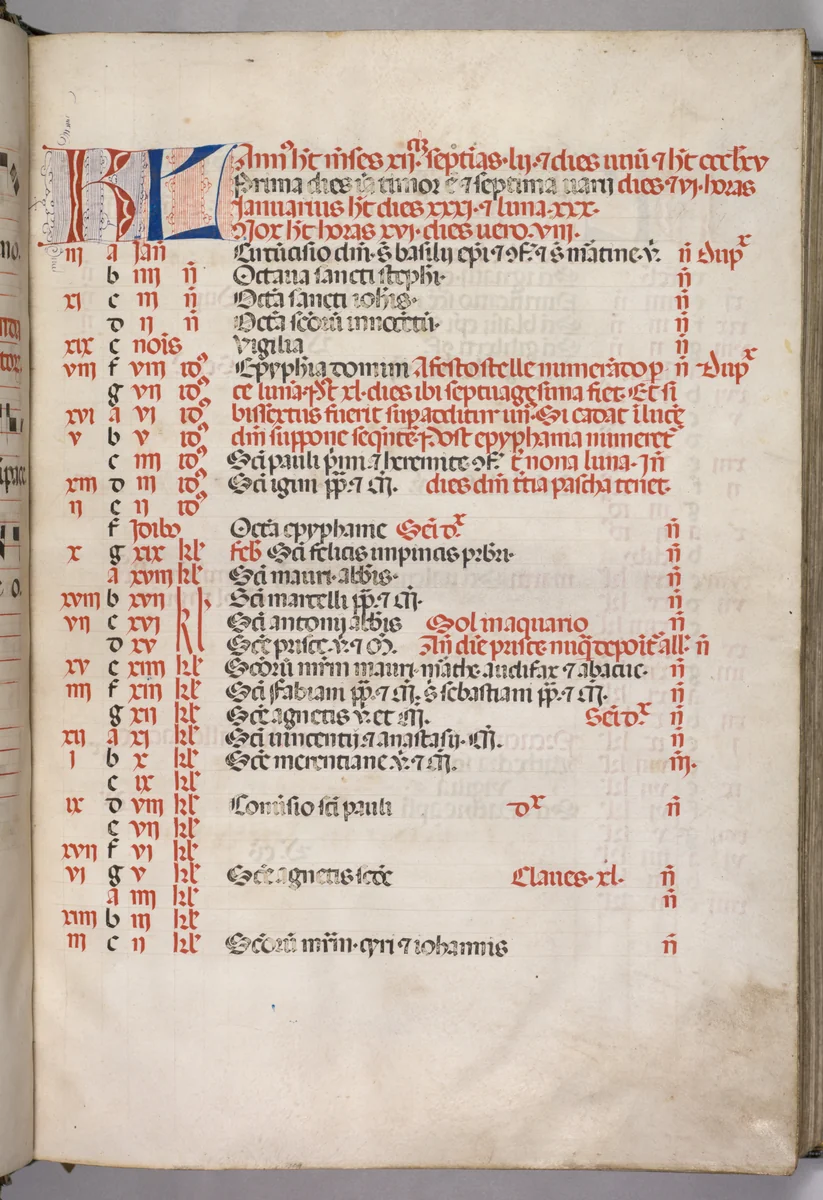 KL Annꝰ ht m̄ses xij. septīas lij ⁊ dies unū ⁊ ht ccclxv
Prima dies timor ē ⁊ septima uani dies ⁊ vi horas
Ianuarius ht dies xxxi ⁊ luna xxx.
Nox ht horas xvi. dies uero viii.
iij a Jan̄ Circūcisio dm̄. s̄ basilij ep̄i ⁊ ↄf. ⁊ s̄ m̄atine v̄. n̄ Dupx
b iiij n̄ Octaua sancti steph̄i. n̄
xi c iij n̄ Octa sancti ioh̄is. n̄
d ij n̄ Octa sc̄orū innocētū. n̄
xix e nois̄ vigilia n̄
viij f viij idꝰ Epyphīa domini A festo stelle numerādo p n̄ Dupx
g vij idꝰ te luna. Pꝰt xl. dies ibi septuagesima fiet. Et si
xvi a vi idꝰ bissextus fuerit sup̄additur un. Si cadat ī luce
v b v idꝰ dm̄ suppone seqn̄te. Post epyphania numeret
c iiij idꝰ Sc̄i pauli p̄mi ⁊ heremite ↄf. nona luna. In
xiij d iij idꝰ Sc̄i igini pp̄. ⁊ m̄. dies dm̄ t̄tia pascha tenet.
ij e ij idꝰ
f Idibꝰ Octa epyphanie Sc̄i dx n̄
x g xix kl̄ feb̄ Sc̄i felicis inpincis prb̄ri. n̄
a xviij kl̄ Sc̄i mauri abb̄is. n̄
xviij b xvij kl̄ Sc̄i martelli pp̄. ⁊ m̄. n̄
vij c xvi kl̄ Sc̄i antonij abb̄is Sol in aquario n̄
d xv Sc̄e prisce. v̄. ⁊ m̄. In die prisce nūq̄ depoīt all̄. n̄
xv e xiiij kl̄ Sc̄orū mr̄m mauri. m̄athe audifax ⁊ abacuc. n̄
iiij f xiij kl̄ Sc̄i fabiani pp̄. ⁊ m̄. s̄ sebastiani pp̄. ⁊ m̄. n̄
g xij kl̄ Sc̄e agnetis v̄. et m̄. Sc̄i dx n̄
xij a xi kl̄ Sc̄i uincentij ⁊ anastasij. m̄. n̄
i b x kl̄ Sc̄e merentiane v̄. ⁊ m̄. iij.
c ix kl̄
ix d viij kl̄ Conūsio sc̄i pauli dx n̄
e vij kl̄
xvij f vi kl̄
vi g v kl̄ Sc̄e agnetis sc̄de Claues. xl. n̄
a iiij kl̄ n̄
xiiij b iij kl̄
iij c ij kl̄ Sc̄orū mr̄m. cyri ⁊ iohannis n̄